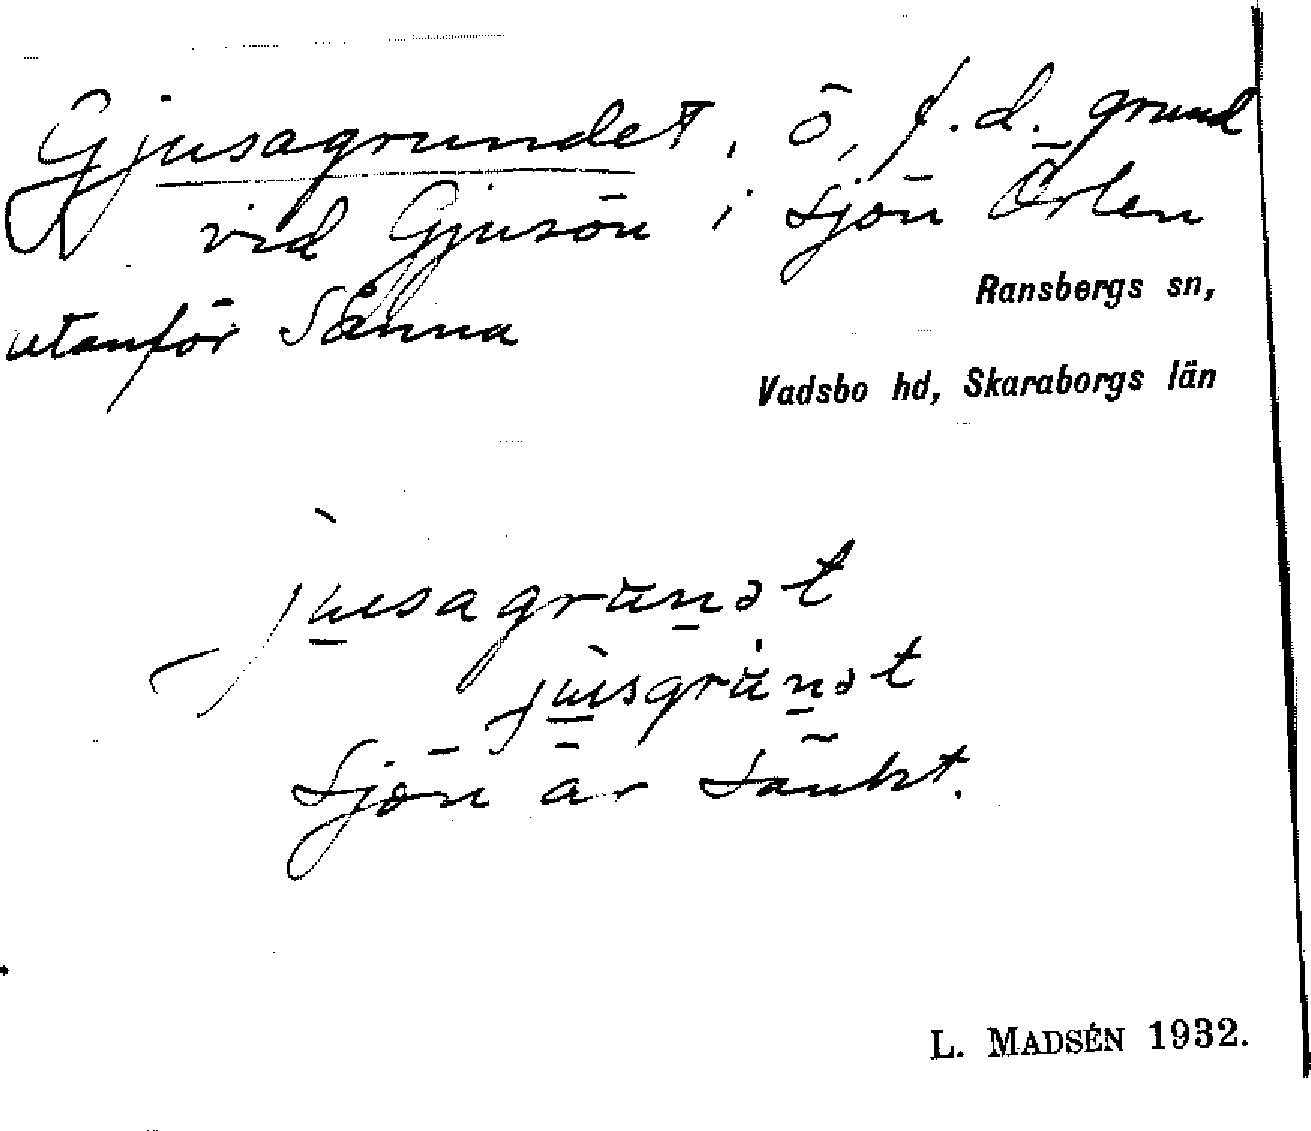 Gjusagrundet, ö, f.d. grund
vid Gjusön i sjön Örlen
utanför Sånna
Ransbergs sn,
Vadsbo hd, Skaraborgs län
Sjön är sänkt.
L. MADSÉN 1932.